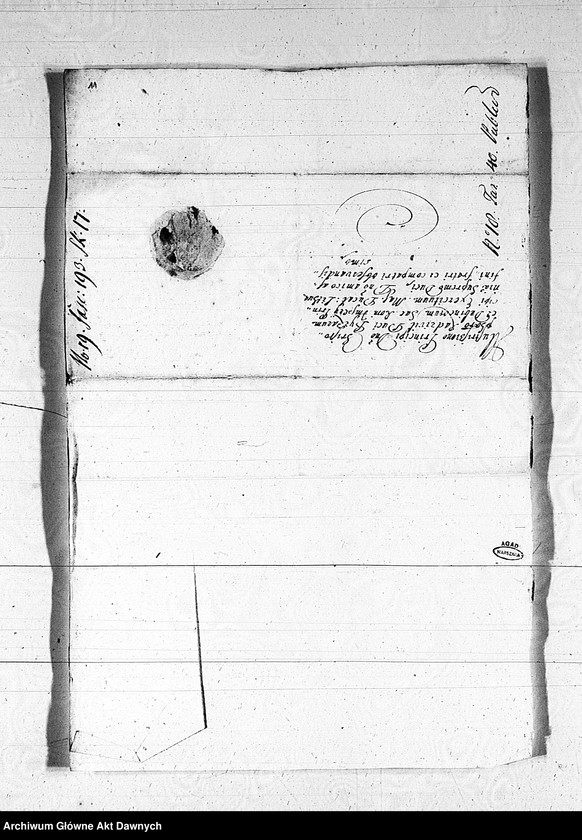 Illustrissimo Principi Dno Cristo..
phoro Radzivil Duci Byrzarum
et Dubincorum, Sac. Rom. Imperii Prin..
cipi Exercituum Mag. Ducat. Lithua
niæ Supremo Duci, Dno amico af
fini fratri et compatri observandis..
simo
No 19. Fasc: 193. Sk: 17.
N. 10. Fas: 40.
AGAD
WARSZAWA
Archiwum Główne Akt Dawnych